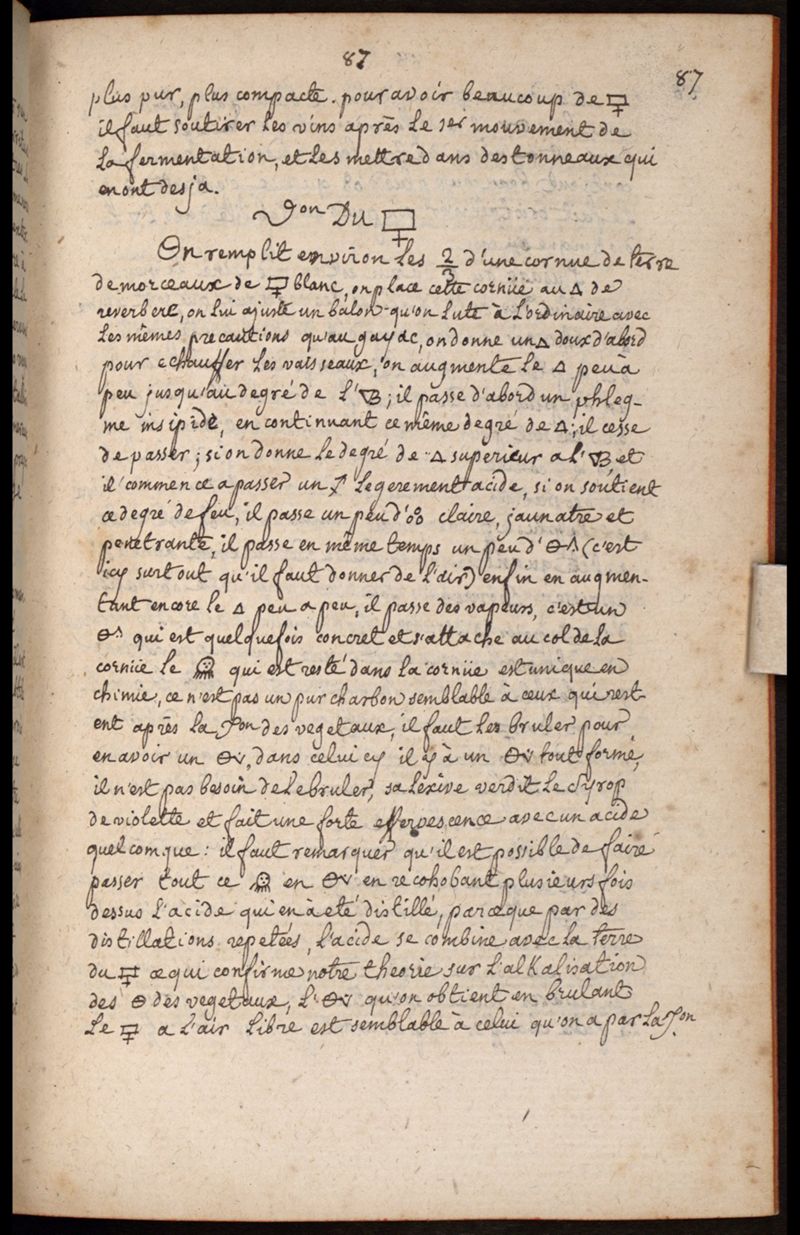 87
87
plus pur, plus compacte. pour avoir beaucoup de 🜿
il faut soutirer les vins après le 1er mouvement de
la fermentation, et les mettre dans des tonneaux qui
en ont desja.
Du 🜿
On remplit environ les 2/3 d'une cornue de terre
de morceaux de 🜿 blanc, on place cette cornüe au 🜂 de
reverbere, on lui ajuste un balon qu'on lute à l'ordinaire avec
les mêmes precautions qu'au gayac, on donne un 🜂 doux d'abord
pour echauffer les vaisseaux, on augmente le 🜂 peu à
peu jusqu'au degré de l'🜄B; il passe d'abord un phleg-
me insipide, en continuant ce même degré de 🜂; il cesse
de passer; si on donne le degré de 🜂 superieur a l'🜄B et
il commence a passer un legerement acide, si on soutient
ce degré de feu, il passe un peu d'🝆 claire, jaunatre et
penetrante, il passe en même temps un peu d' 🜔^ (c'est
icy surtout qu'il faut donner de l'air) enfin en augmen-
tant encore le 🜂 peu a peu, il passe des vapeurs, c'est un
🜔^ qui est quelquefois concret et s'attache au col de la
cornüe le 🝎 qui est resté dans la cornüe est unique en
chimie, ce n'est pas un pur charbon semblable à ceux qui rest-
ent après la des vegetaux, il faut les bruler pour
en avoir un 🜔v, dans celui cy il y à un 🜔v tout formé,
il n'est pas besoin de le bruler, sa lexive verdit le syrop
de violette et fait une forte effervescence avec un acide
quelcomque: il faut remarquer qu'il est possible de faire
passer tout ce 🝎 en 🜔v en recohobant plusieurs fois
dessus l'acide qui en à eté distillé, parceque par des
distillations repetées, l'acide se combine avec la terre
du 🜿 ce qui confirme notre theorie sur l'alkalisation
des 🜔 des vegetaux, l'🜔v qu'on obtient en brulant
le 🜿 a l'air libre est semblable à celui qu'on a par la